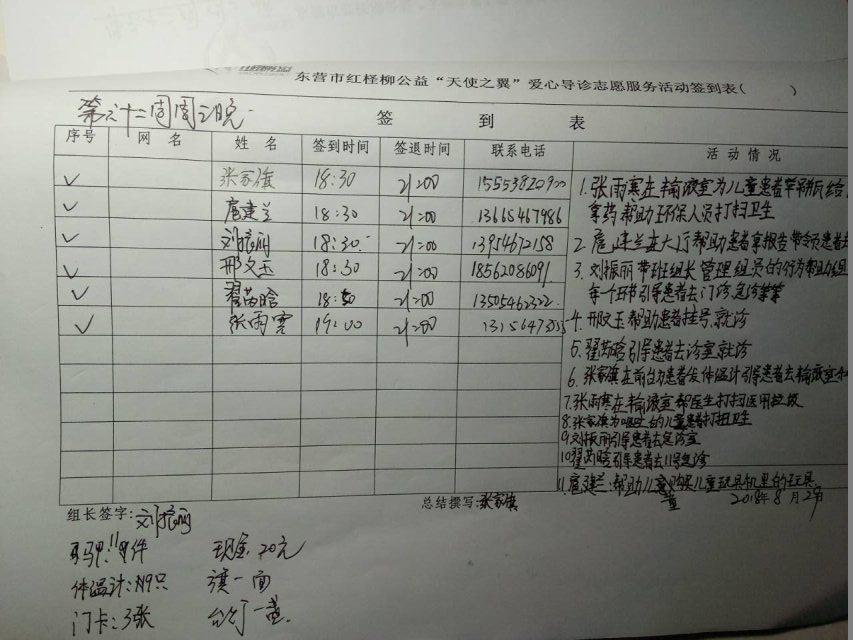 东营市红柽柳公益“天使之翼”爱心导诊志愿服务活动签到表( )
第六十二周周三晚
签 到 表
序号 网 名 姓 名 签到时间 签退时间 联系电话 活动情况
✓ 张家旗 18:30 21:00 15553820900
✓ 扈建兰 18:30 21:00 13665467986
✓ 刘振丽 18:30 21:00 13954672158
✓ 邢文玉 18:30 21:00 18562086091
✓ 翟茜晗 18:30 21:00 13505462322
✓ 张雨寒 19:00 21:00
1.张雨寒在输液室为儿童患者
拿药帮助环保人员打扫卫生
2.扈建兰在大厅帮助患者拿报告带领患者去
3.刘振丽带班组长管理组员的行为帮助组
引导患者去门诊急诊
4.邢文玉帮助患者挂号.就诊
5.翟茜晗引导患者去诊室就诊
6.张家旗在前台为患者发体温计引导患者去输液室
7.张雨寒在输液室帮医生打扫医用垃圾
8.张家旗为呕吐的儿童患者打扫卫生
9.刘振丽引导患者去急诊室
10.翟茜晗引导患者去儿童急诊
11.扈建兰:帮助儿童购买儿童玩具机里的玩具
组长签字:刘振丽
总结撰写:张家旗
2018年8月29
马甲:11件 现金:20元
体温计: 只 旗一面
门卡:3张 台灯一盏.